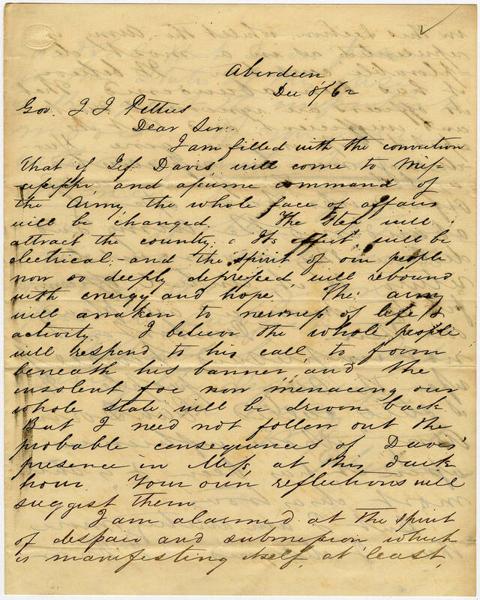 Aberdeen
Dec 8/62
Gov. J J Pettus
Dear Sir:
I am filled with the conviction
that if Jef Davis will come to Mis-
sissippi, and assume command of
the Army the whole face of affairs
will be changed. The step will
attract the country. Its effect will be
electrical, and the spirit of our people
now so deeply depressed, will rebound
with energy and hope. The army
will awaken to newness of life &
activity. I believe the whole people
will respond to his call to form
beneath his banner, and the
insolent foe now menacing our
whole state will be driven back
But I need not follow out the
probable consequences of Davis'
presence in Miss, at this dark
hour. Your own reflections will
suggest them
I am alarmed at the spirit
of despair and submission which
is manifesting itself, at least,